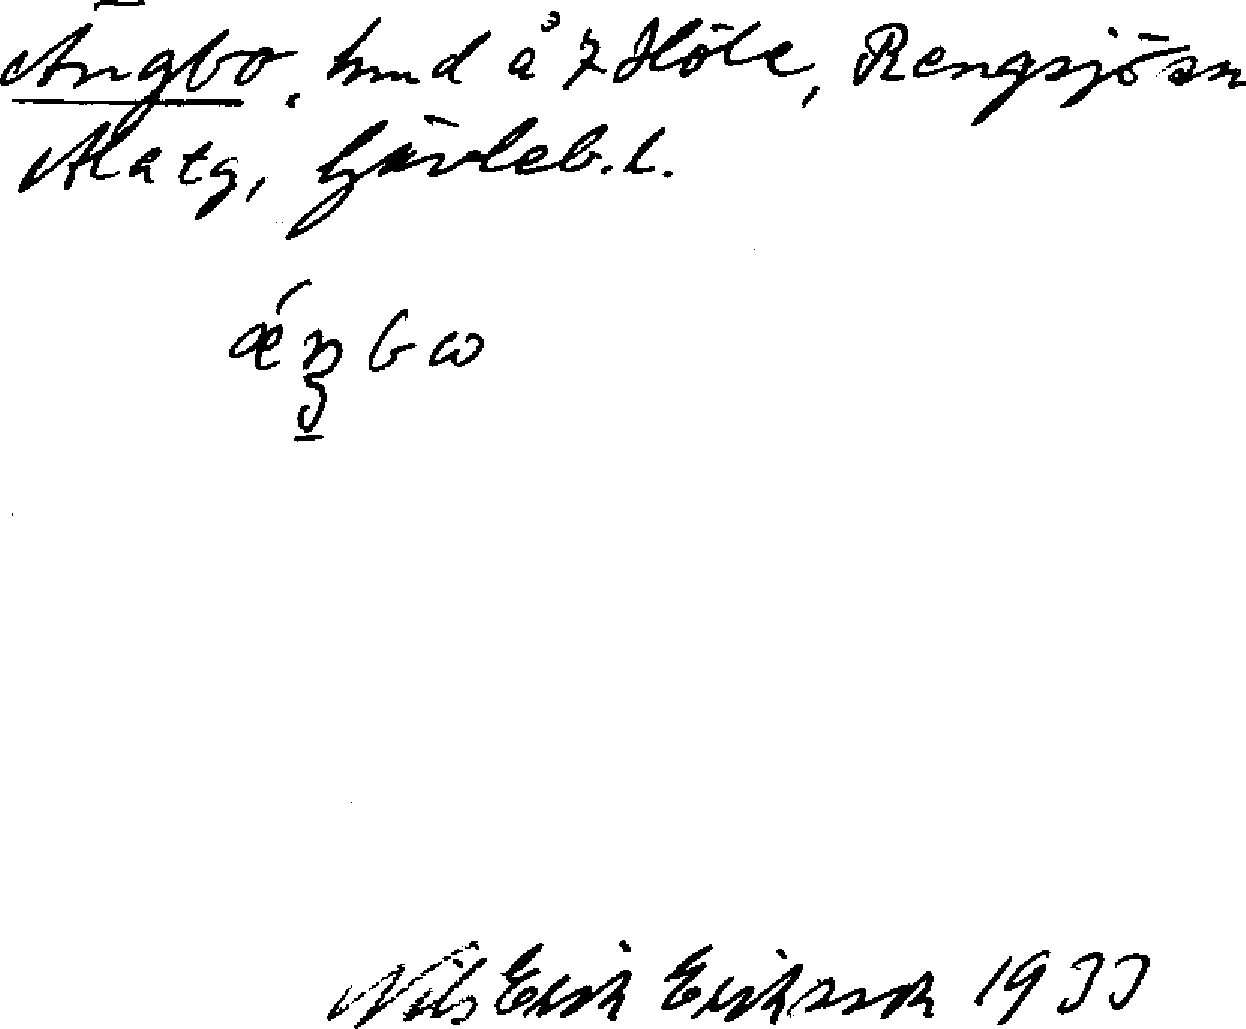 Ängbo, hmd å 7 Höle, Rengsjö sn
Ala tg, Gävleb. l.
ǽŋbω
Nils Erik Eriksson 1933